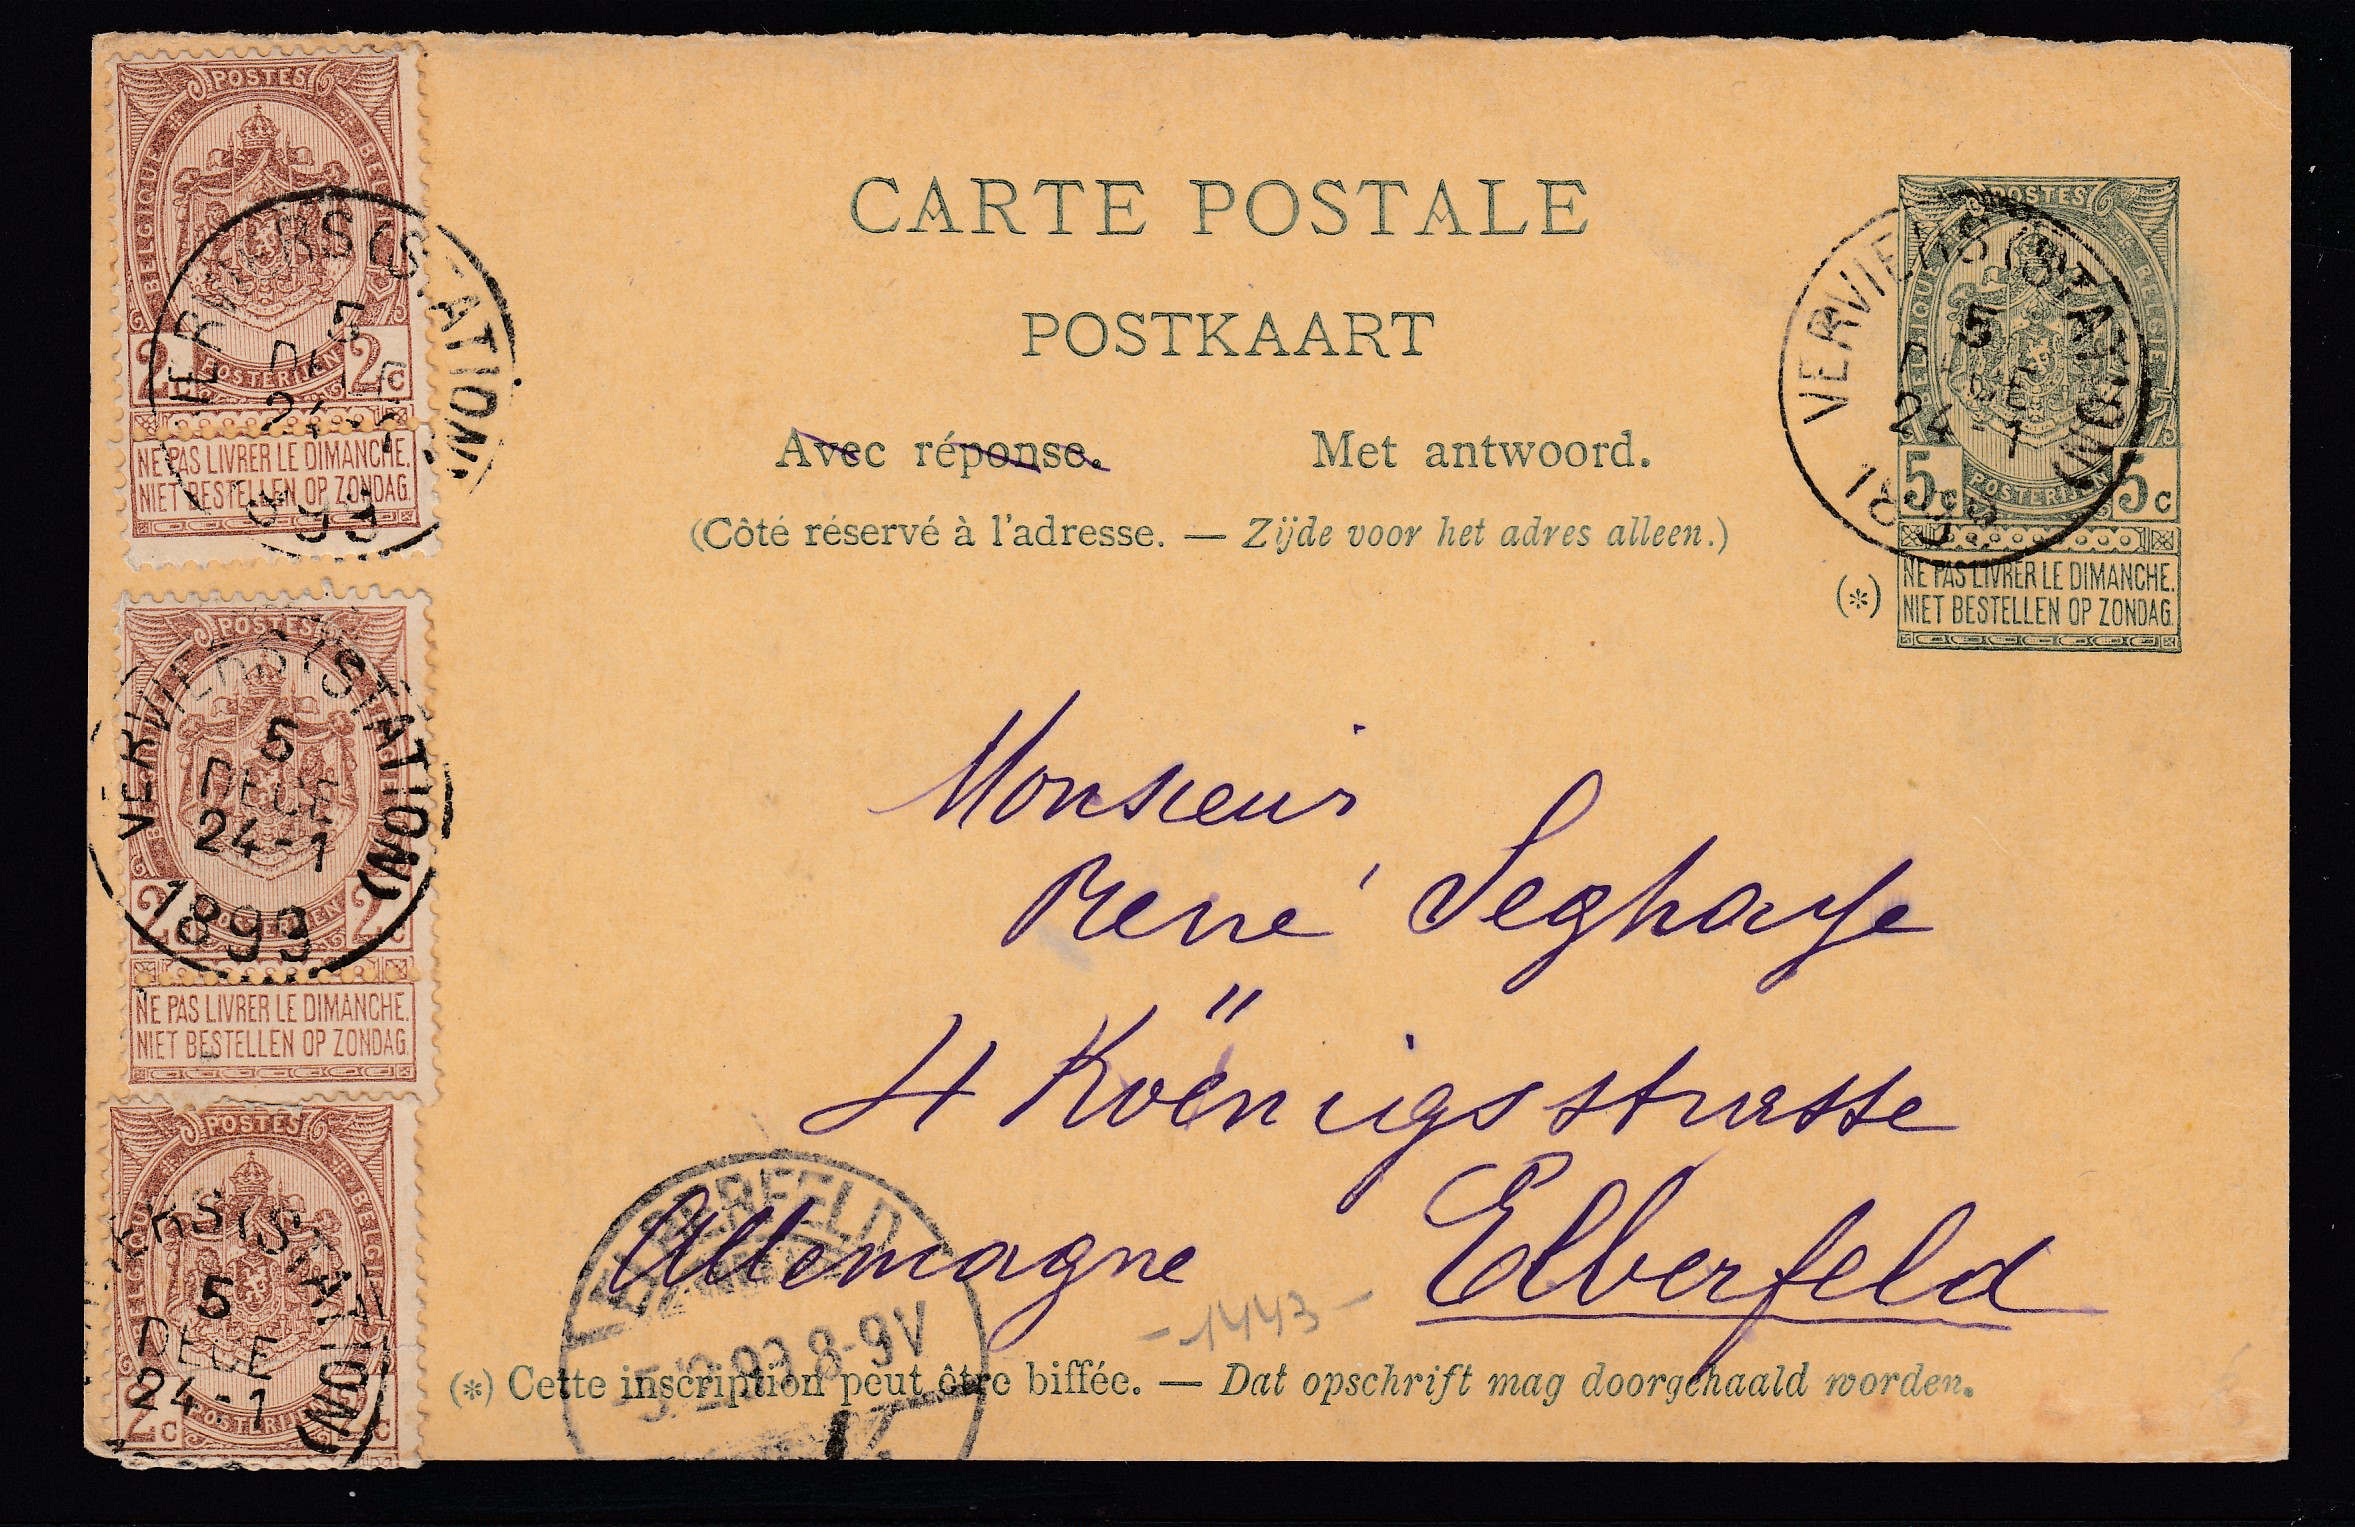 POSTES
BELGIQUE
BELGIË
2c
2c
POSTERIJEN
NE PAS LIVRER LE DIMANCHE.
NIET BESTELLEN OP ZONDAG.
5
1893
POSTES
VERVIERS (STATION)
5
DECE
24-1
1893
2c
2c
NE PAS LIVRER LE DIMANCHE.
NIET BESTELLEN OP ZONDAG.
POSTES
BELGIQUE
BELGIË
5
DECE
24-1
2c
POSTERIJEN
CARTE POSTALE
POSTKAART
Avec réponse. Met antwoord.
(Côté réservé à l'adresse. — Zijde voor het adres alleen.)
POSTES
BELGIQUE
BELGIË
VERVIERS (STATION)
5
DECE
24-1
5c
5c
POSTERIJEN
(*) NE PAS LIVRER LE DIMANCHE.
NIET BESTELLEN OP ZONDAG.
Monsieur
René Seghaye
4 Koënigsstrasse
Allemagne Elberfeld
ELBERFELD
5.12.93 8-9V
-1443-
(*) Cette inscription peut être biffée. — Dat opschrift mag doorgehaald worden.